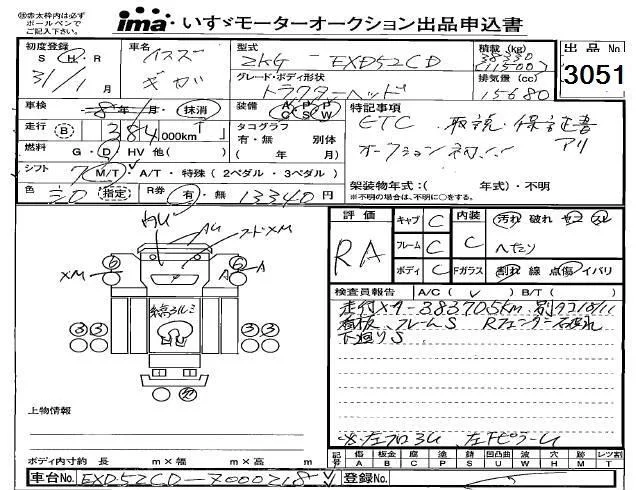 ㊟赤太枠内は必ず
ボールペンで
ご記入下さい。
ima いすゞモーターオークション出品申込書
初度登録
S・H・R
31/1月
車名
イスズ
ギガ
型式
2KG-EXD52CD
グレード・ボディ形状
トラクターヘッド
積載(kg)
(11500)
排気量(cc)
15680
出品No
3051
車検
年 月・抹消
走行 B 384,000km
装備 A/C P/S P/W
タコグラフ
有・無 別体
( 年 月)
燃料
G・D・HV 他( )
シフト
M/T・A/T・特殊(2ペダル・3ペダル)
色
シロ 指定
R券
有・無 13340円
特記事項
ETC 取説・保証書
アリ
オークション初!!
架装物年式:( 年式)・不明
※不明の場合は、不明に○をする。
AU
フードXM
⑥ ⑥
XM
A A
③③ ③③
②
評価
RA
キャブ C
フレーム C
ボディ C
内装
C
Fガラス
汚れ 破れ
へたり
割れ 線 点傷 イバリ
検査員報告 A/C(✓) B/T( )
走行メーター383705km
看板、フレームS
下廻りS
上物情報
ボディ内寸約 長 m×幅 m×高 m
記号
傷 A
板金 B
腐 C
塗 P
錆 S
凹凸曲 U
波 W
穴 H
跡 M
レツ割 T
車台No. EXD52CD-7000218
登録No.